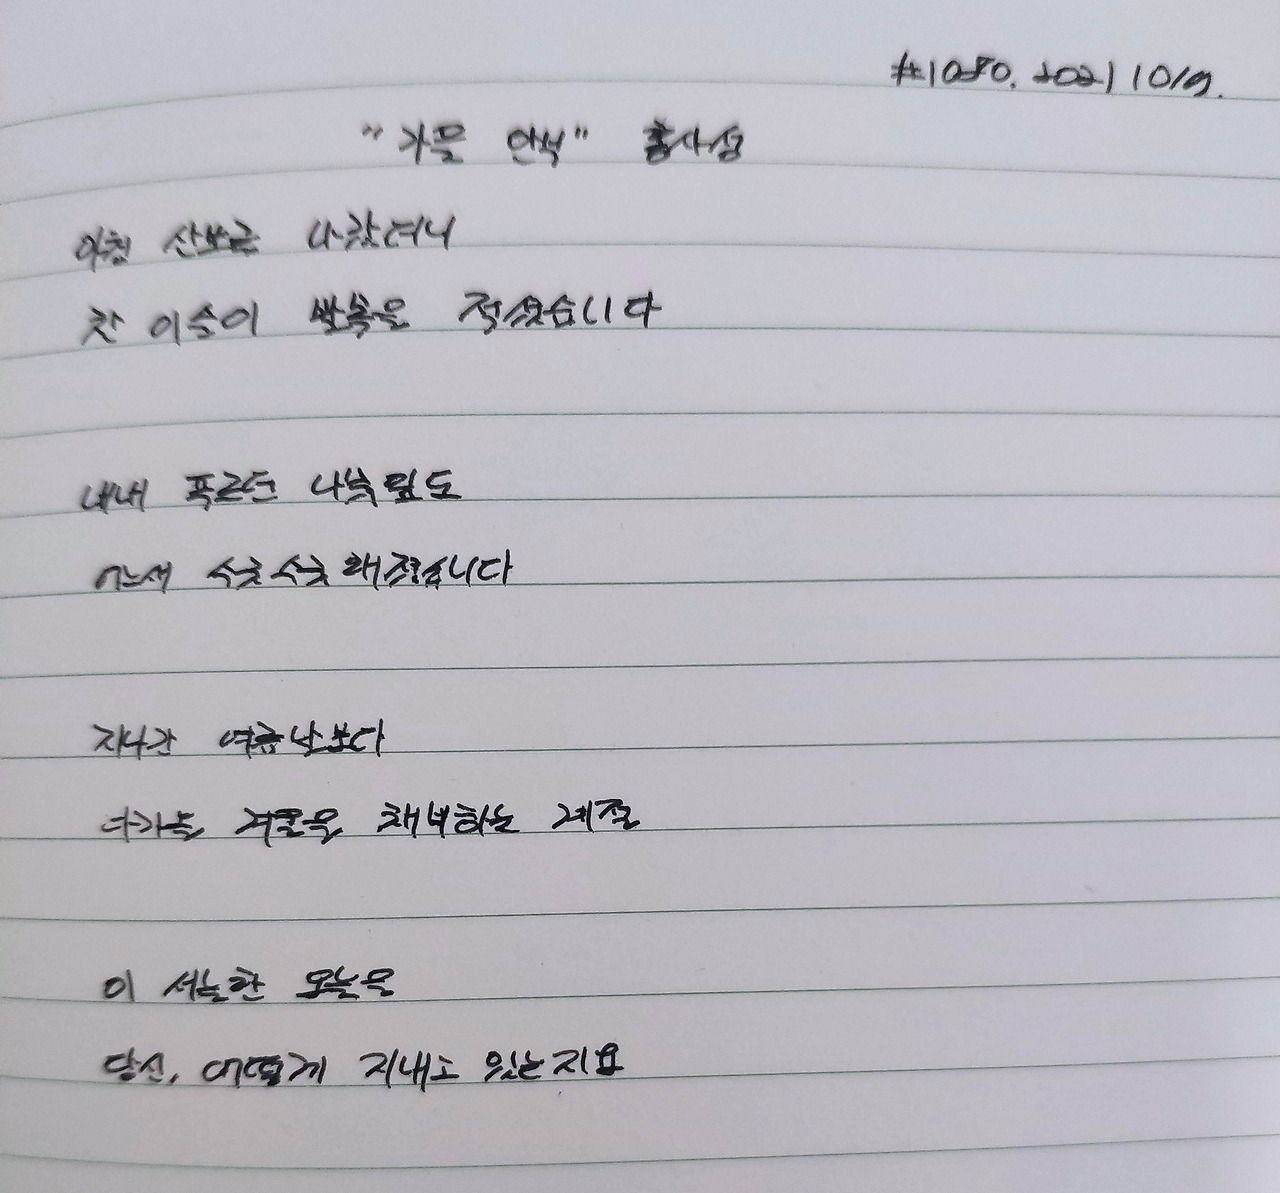 #1080. 2021 1019.
"가을 안부" 홍사성
아침 산보를 나갔더니
찬 이슬이 발목을 적셨습니다
내내 푸르던 나뭇잎도
어느새 수굿수굿해졌습니다
지나간 여름날보다
다가올 겨울을 채비하는 계절
이 서늘한 오늘을
당신, 어떻게 지내고 있는지요